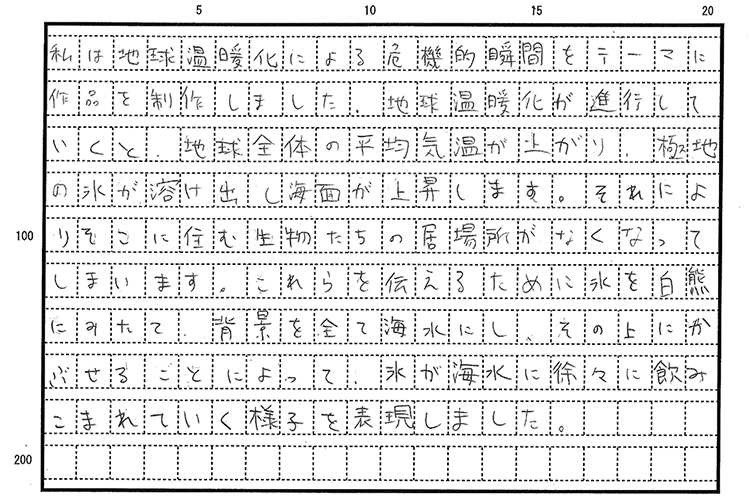 5 10 15 20
私は地球温暖化による危機的瞬間をテーマに
作品を制作しました。地球温暖化が進行して
いくと、地球全体の平均気温が上がり、極地
の氷が溶け出し海面が上昇します。それによ
100 りそこに住む生物たちの居場所がなくなって
しまいます。これらを伝えるために氷を白熊
にみたて、背景を全て海水にし、その上にか
ぶせることによって、氷が海水に徐々に飲み
こまれていく様子を表現しました。
200